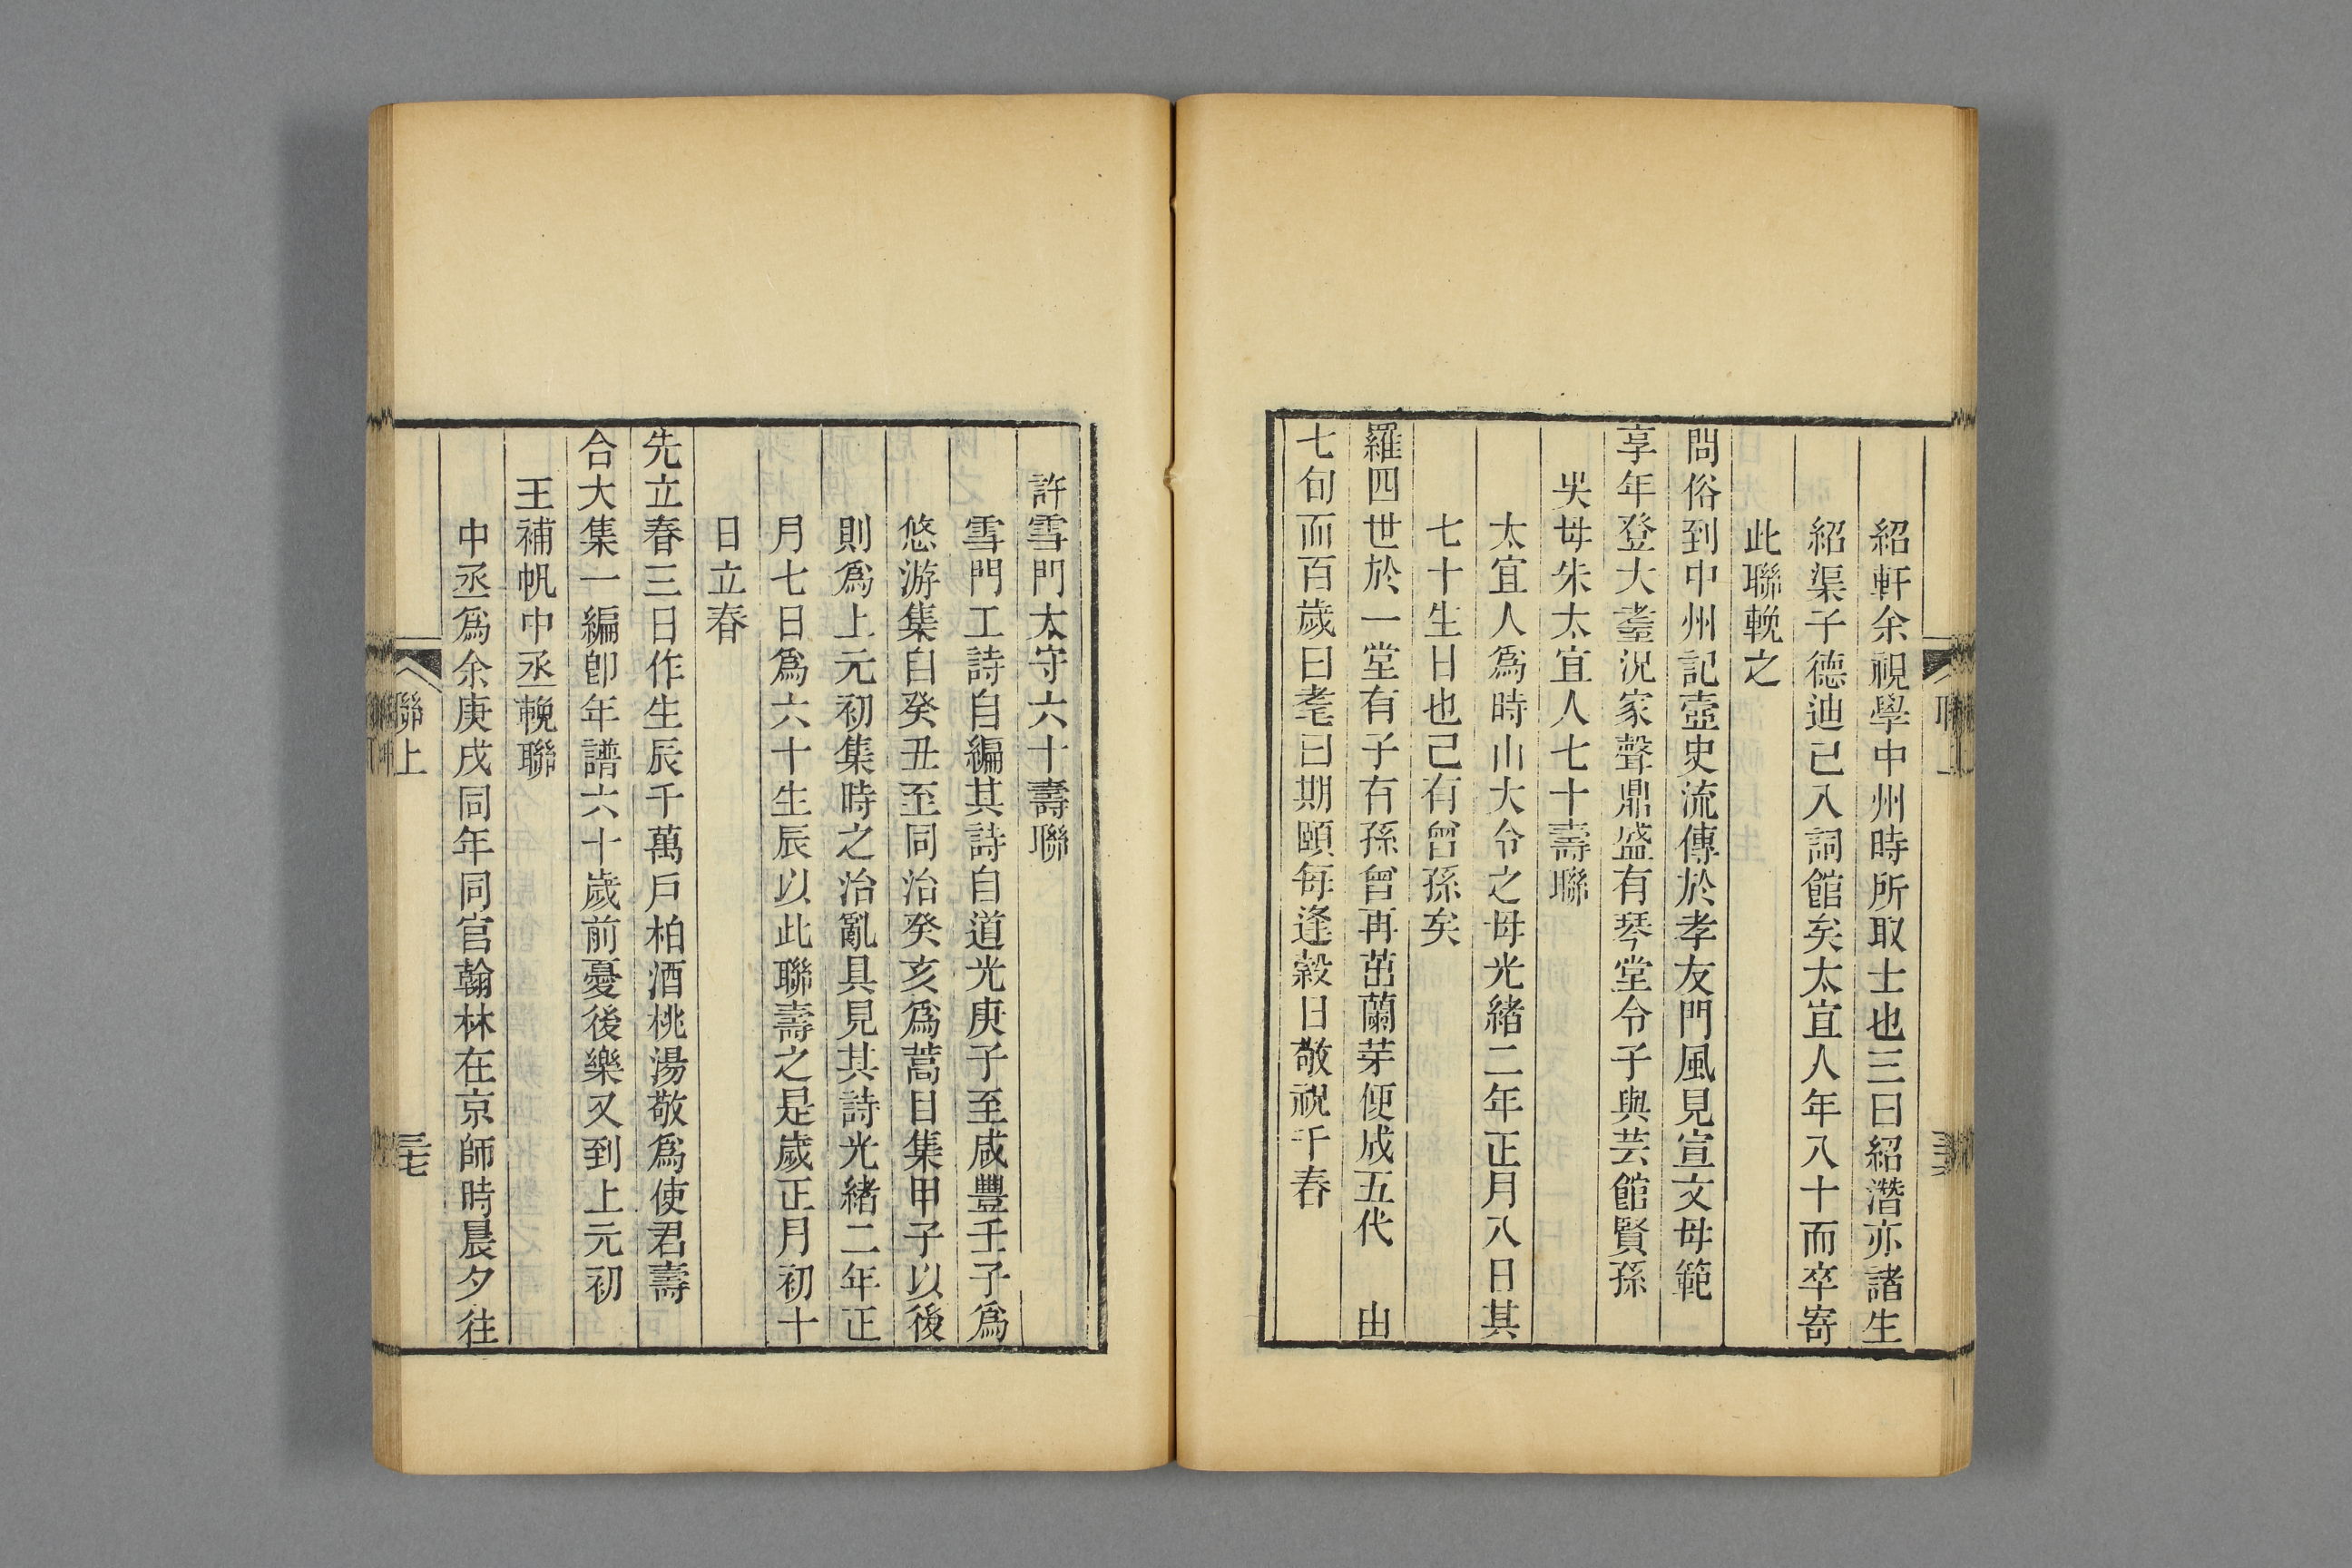 紹軒余視學中州時所取士也三曰紹潛亦諸生
紹渠子德迪已入詞館矣太宜人年八十而卒寄
此聯輓之
問俗到中州記壼史流傳於孝友門風見宣文母範
享年登大耋況家聲鼎盛有琴堂令子與芸館賢孫
吳母朱太宜人七十壽聯
太宜人爲時山大令之母光緒二年正月八日其
七十生日也已有曾孫矣
羅四世於一堂有子有孫曾再茁蘭芽便成五代　由
七旬而百歲曰耄曰期頤每逢穀日敬祝千春
許雪門太守六十壽聯
雪門工詩自編其詩自道光庚子至咸豐壬子爲
悠游集自癸丑至同治癸亥爲蒿目集甲子以後
則爲上元初集時之治亂具見其詩光緒二年正
月七日爲六十生辰以此聯壽之是歲正月初十
日立春
先立春三日作生辰千萬戶柏酒桃湯敬爲使君壽
合大集一編卽年譜六十歲前憂後樂又到上元初
王補帆中丞輓聯
中丞爲余庚戌同年同官翰林在京師時晨夕往
聯上
三七